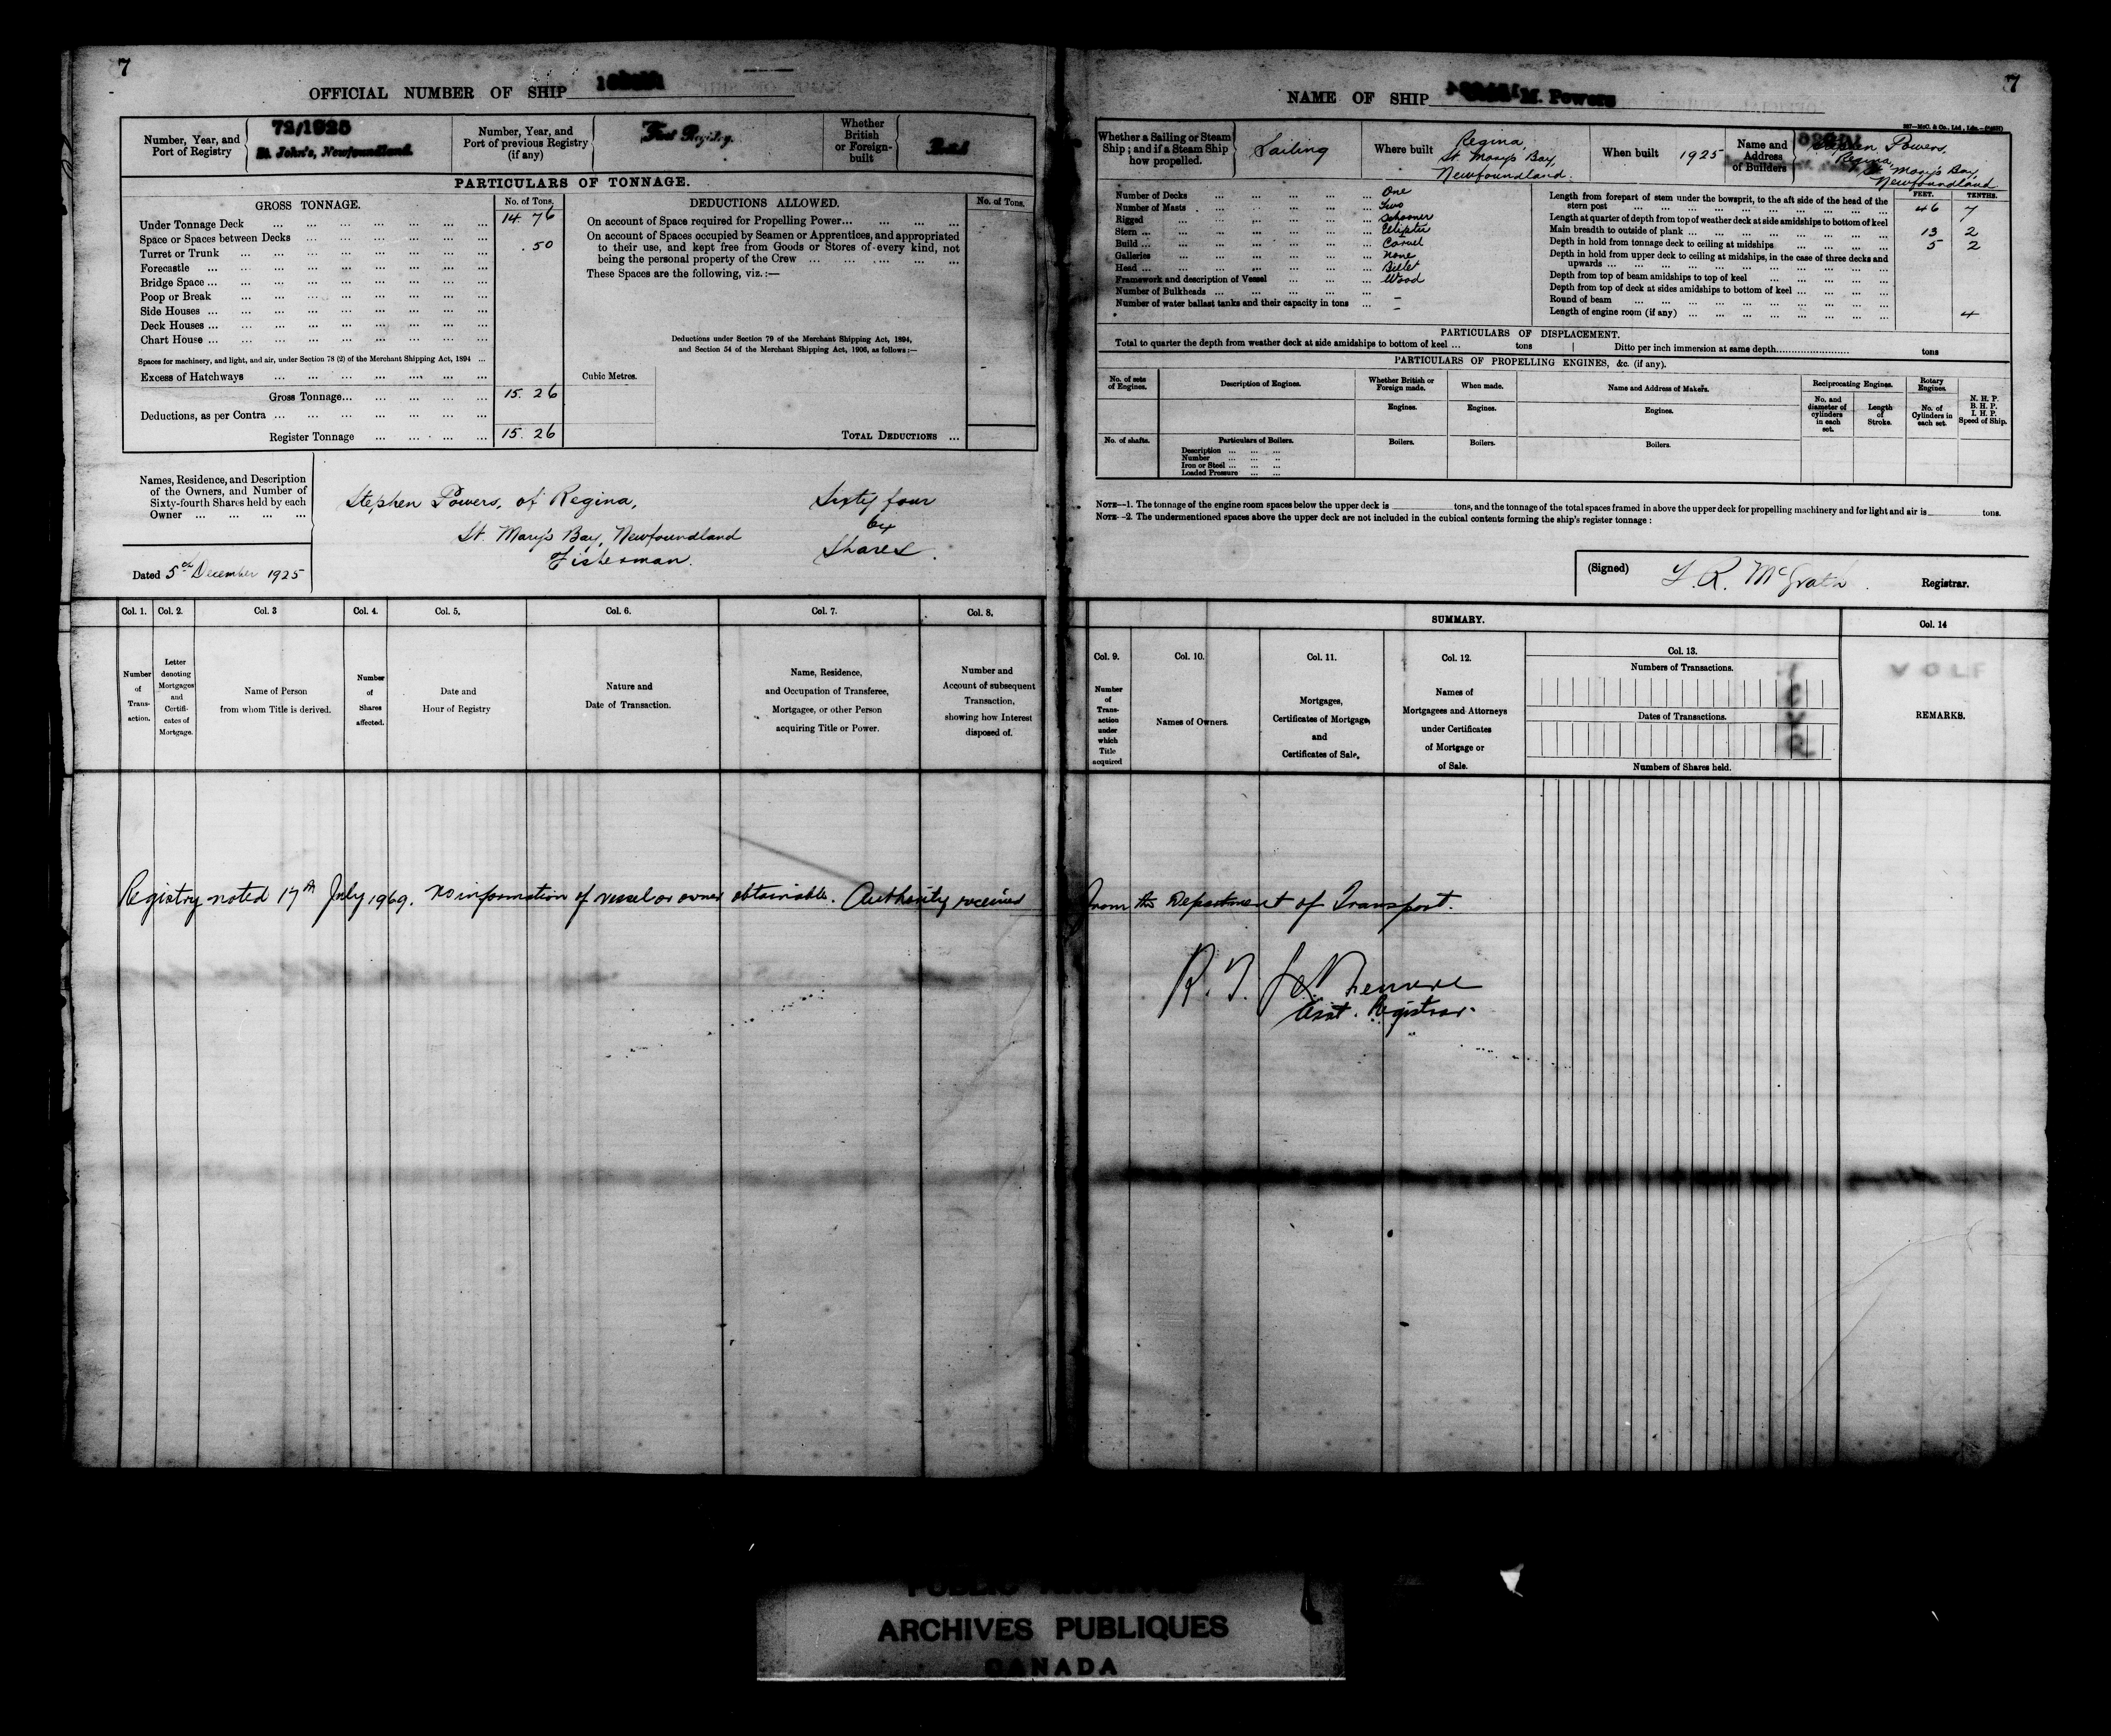 7
OFFICIAL NUMBER OF SHIP
Number, Year, and Port of Registry
72/1925
St. John's, Newfoundland.
Number, Year, and Port of previous Registry (if any)
First Registry.
Whether British or Foreign-built
PARTICULARS OF TONNAGE.
GROSS TONNAGE.
No. of Tons.
Under Tonnage Deck ... 14 76
Space or Spaces between Decks ...
Turret or Trunk ... .50
Forecastle ...
Bridge Space ...
Poop or Break ...
Side Houses ...
Deck Houses ...
Chart House ...
Spaces for machinery, and light, and air, under Section 78 (2) of the Merchant Shipping Act, 1894 ...
Excess of Hatchways ...
Gross Tonnage... 15. 26
Deductions, as per Contra ...
Register Tonnage ... 15. 26
DEDUCTIONS ALLOWED.
No. of Tons.
On account of Space required for Propelling Power...
On account of Spaces occupied by Seamen or Apprentices, and appropriated
to their use, and kept free from Goods or Stores of every kind, not
being the personal property of the Crew ...
These Spaces are the following, viz.:—
Deductions under Section 79 of the Merchant Shipping Act, 1894,
and Section 54 of the Merchant Shipping Act, 1906, as follows:—
Cubic Metres.
TOTAL DEDUCTIONS ...
Names, Residence, and Description
of the Owners, and Number of
Sixty-fourth Shares held by each
Owner ...
Stephen Powers, of Regina,
St. Mary's Bay, Newfoundland
Fisherman.
Sixty four
64
Shares.
Dated 5th December 1925
Col. 1.
Number of Transaction.
Col. 2.
Letter denoting Mortgages and Certificates of Mortgage.
Col. 3
Name of Person from whom Title is derived.
Col. 4.
Number of Shares affected.
Col. 5.
Date and Hour of Registry
Col. 6.
Nature and Date of Transaction.
Col. 7.
Name, Residence, and Occupation of Transferee, Mortgagee, or other Person acquiring Title or Power.
Col. 8.
Number and Account of subsequent Transaction, showing how Interest disposed of.
7
NAME OF SHIP M. Powers
Whether a Sailing or Steam Ship; and if a Steam Ship how propelled.
Sailing
Where built
Regina,
St. Mary's Bay,
Newfoundland.
When built
1925
Name and Address of Builders
Stephen Powers,
Regina,
St. Mary's Bay,
Newfoundland
Number of Decks ... One
Number of Masts ... Two
Rigged ... Schooner
Stern ...
Build ... Carvel
Galleries ... None
Head ... Billet
Framework and description of Vessel ... Wood
Number of Bulkheads ... –
Number of water ballast tanks and their capacity in tons ... –
FEET. TENTHS.
Length from forepart of stem under the bowsprit, to the aft side of the head of the
stern post ... 46 7
Length at quarter of depth from top of weather deck at side amidships to bottom of keel
Main breadth to outside of plank ... 13 2
Depth in hold from tonnage deck to ceiling at midships ... 5 2
Depth in hold from upper deck to ceiling at midships, in the case of three decks and
upwards ...
Depth from top of beam amidships to top of keel ...
Depth from top of deck at sides amidships to bottom of keel ...
Round of beam ... 4
Length of engine room (if any) ...
PARTICULARS OF DISPLACEMENT.
Total to quarter the depth from weather deck at side amidships to bottom of keel ... tons
Ditto per inch immersion at same depth... tons
PARTICULARS OF PROPELLING ENGINES, &c. (if any).
No. of sets of Engines.
Description of Engines.
Whether British or Foreign made.
When made.
Name and Address of Makers.
Reciprocating Engines.
Rotary Engines.
N. H. P.
B. H. P.
I. H. P.
Speed of Ship.
Engines.
Engines.
Engines.
No. and diameter of cylinders in each set.
Length of Stroke.
No. of Cylinders in each set.
No. of shafts.
Particulars of Boilers.
Description ...
Number ...
Iron or Steel ...
Loaded Pressure ...
Boilers.
Boilers.
Boilers.
NOTE—1. The tonnage of the engine room spaces below the upper deck is tons, and the tonnage of the total spaces framed in above the upper deck for propelling machinery and for light and air is tons.
NOTE—2. The undermentioned spaces above the upper deck are not included in the cubical contents forming the ship's register tonnage:
(Signed) McGrath. Registrar.
SUMMARY.
Col. 9.
Number of Transaction under which Title acquired
Col. 10.
Names of Owners.
Col. 11.
Mortgages, Certificates of Mortgage, and Certificates of Sale.
Col. 12.
Names of Mortgagees and Attorneys under Certificates of Mortgage or of Sale.
Col. 13.
Numbers of Transactions.
Dates of Transactions.
Numbers of Shares held.
Col. 14
REMARKS.
Registry noted 17th July 1969. No information of vessel or owner obtainable. Authority received from the Department of Transport.
Asst. Registrar.
PUBLIC ARCHIVES
ARCHIVES PUBLIQUES
CANADA